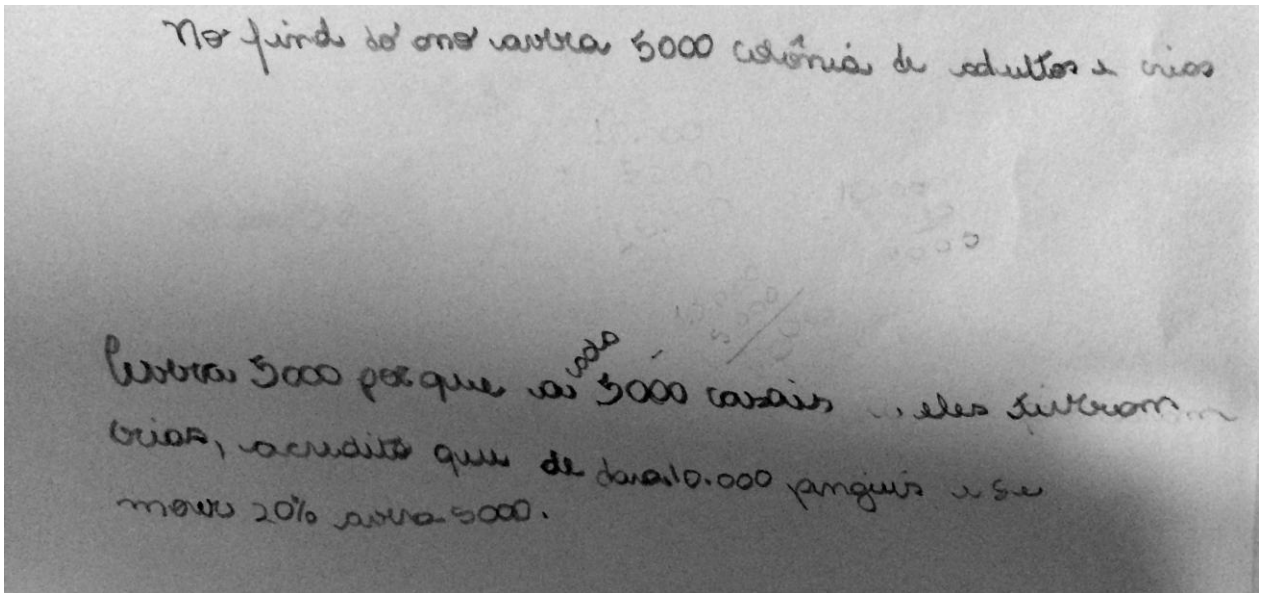 No find do ano avera 5000 colônia de adultos e crias
avera 5000 porque a cada 5000 casais eles tiveram
crias, acredito que de dara 10.000 pinguis e se
morre 20% avera 5000.